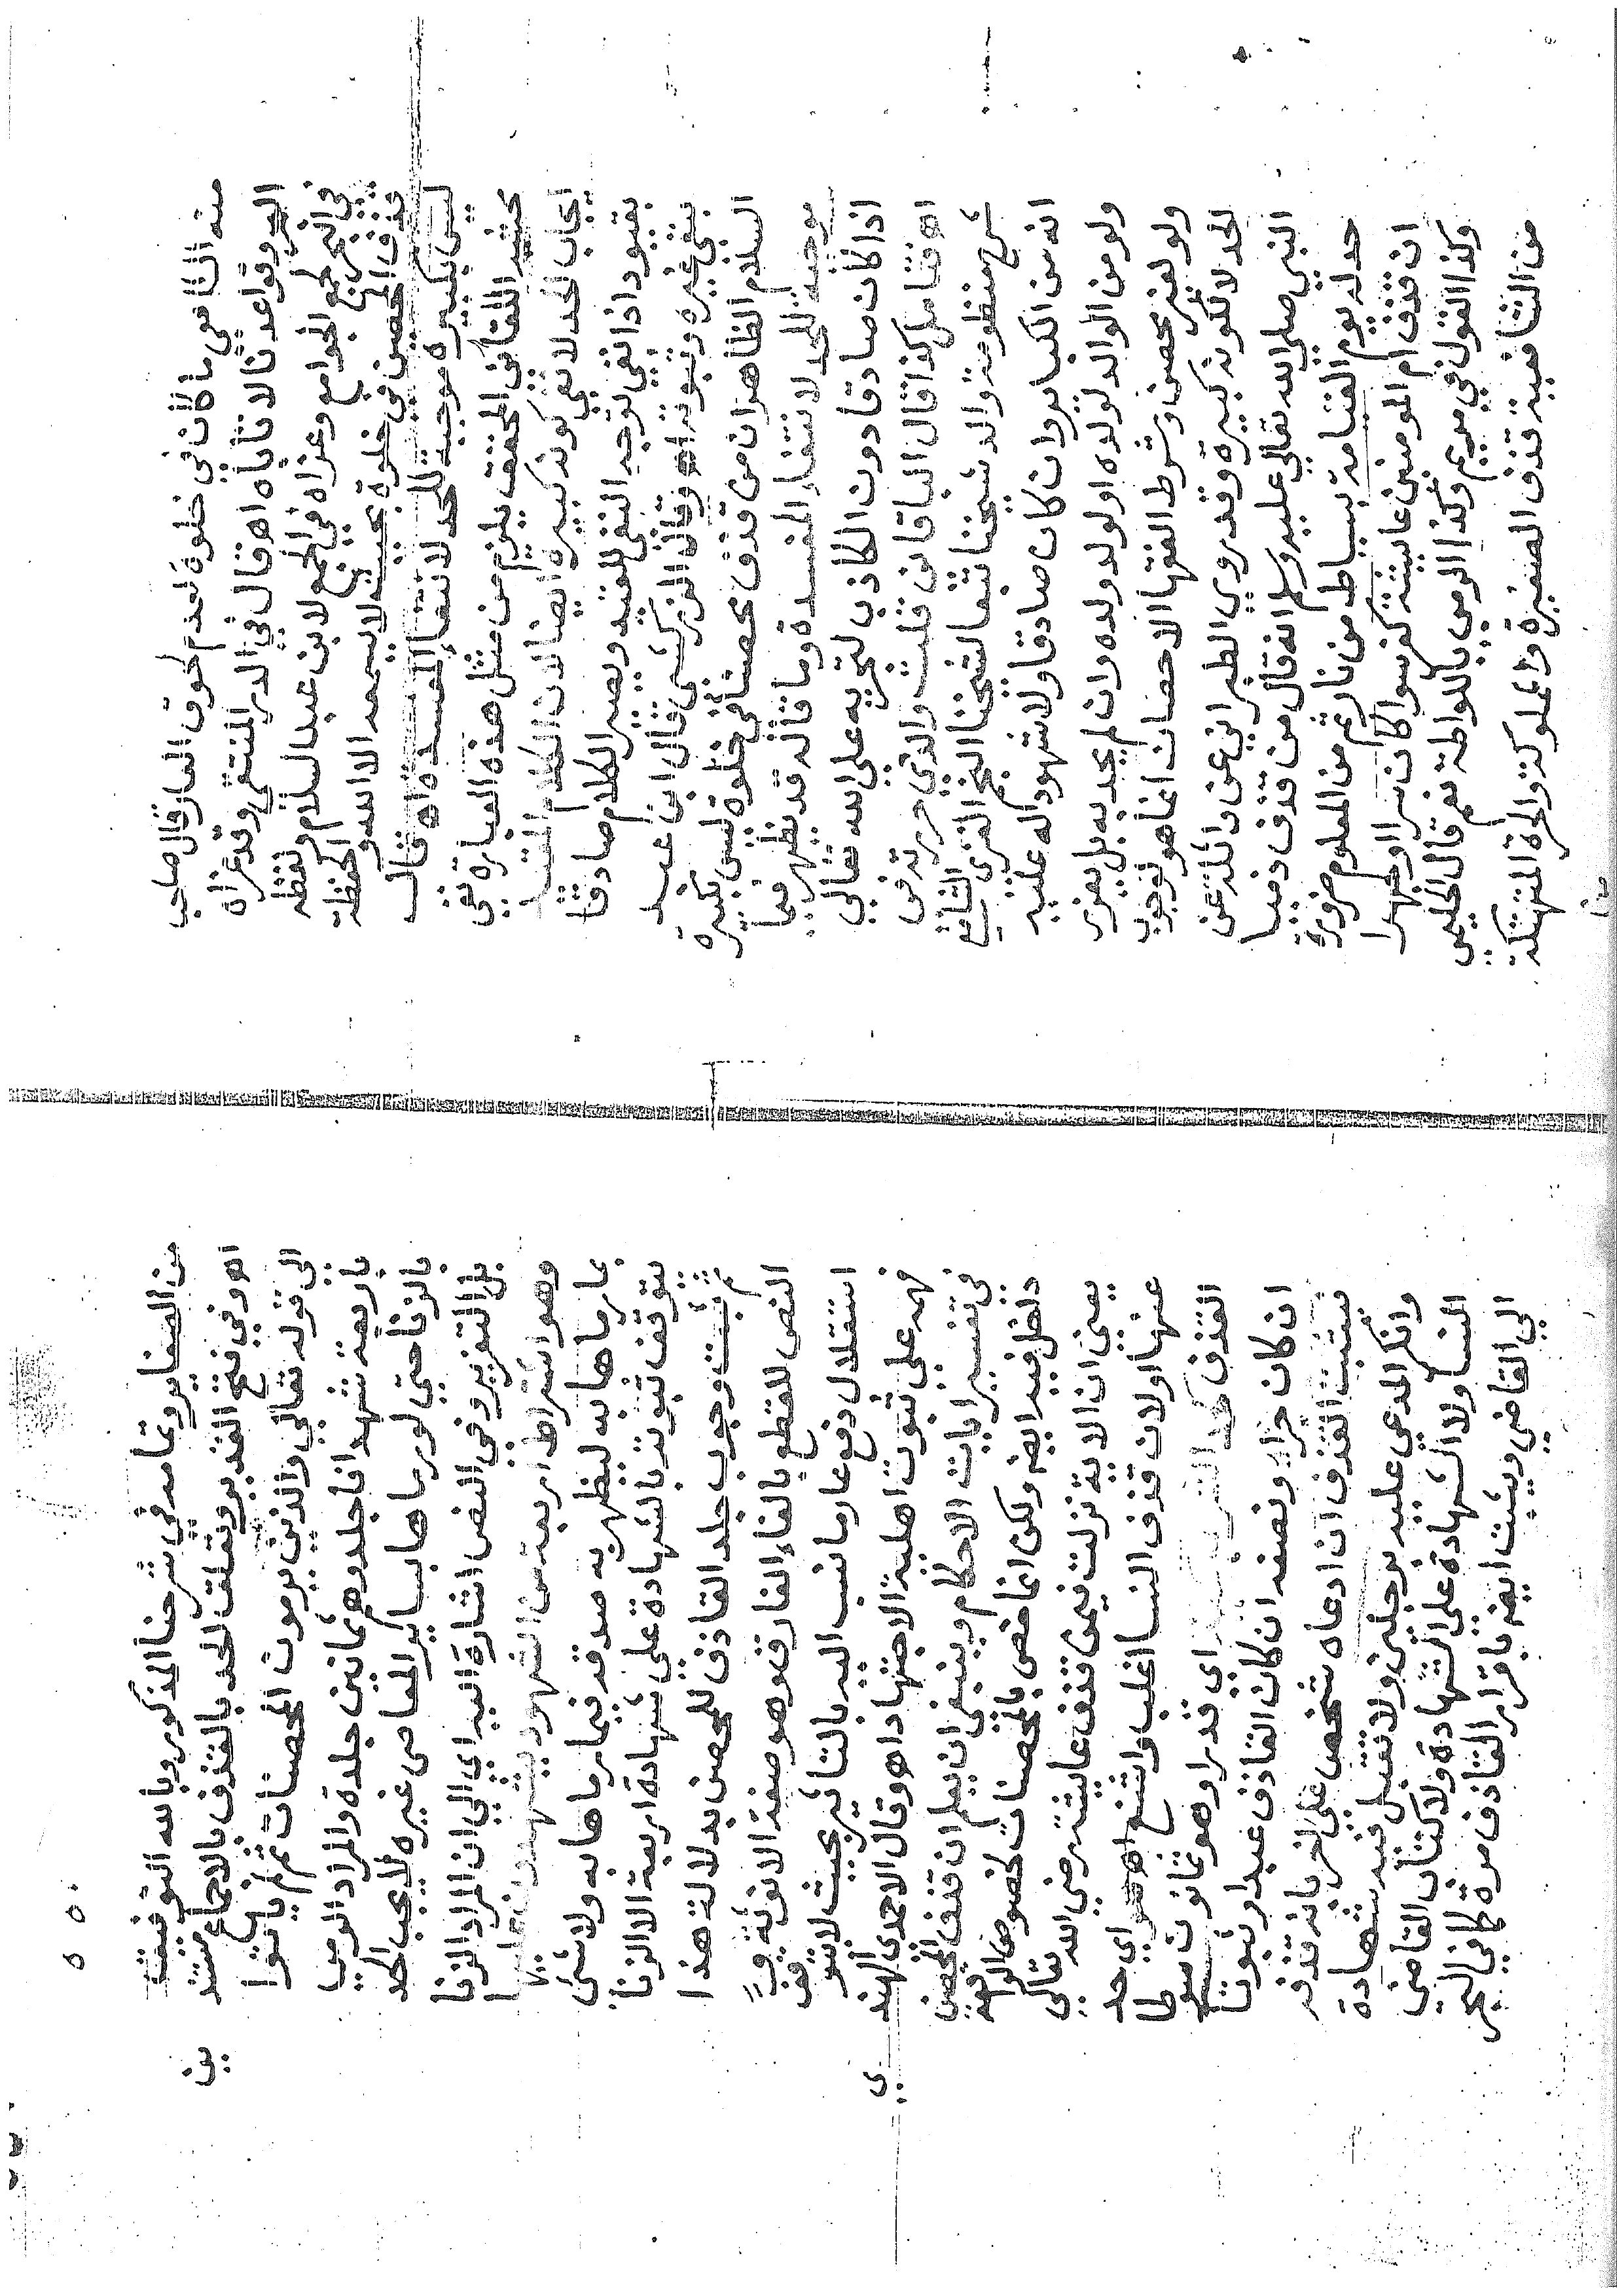 منه الشافعي ما كان في خلوة لعدم لحوق العار قال صاحب
البحر وقواعدنا لا تاباه اهـ قال في الدر المنتقي وقد عزاه
في البحر لجمع الجوامع وعزاه في المجمع لابن عبد السلام ولفظه
قذف المحصن في خلوة بحيث لا يسمعه الا الله والحفظة
ليس بكبيرة موجبة للحد لانتفاء المفسدة اهـ قال
محشيه اللقاني المحقق يلزم من مثل هذه العبارة نفي
ايجاب الحد لا نفي كونه كبيرة ايضا لان الكلام المقيد
بقيود اذا نفي توجه النفي للقيد ويصير الكلام صادقا
بنفي غيره وثبوته اهـ وقال الزركشي قال ابن عبد
السلام الظاهر ان من قذف محصنا في خلوة ليس بكبيرة
موجبة للحد لانتفاء المفسدة وما قاله قد يظهر فيما
اذا كان صادقا دون الكاذب لتجريه علي الله تعالي
اهـ فتامل كذا قال الباقاني قلت والذي حررته في
شرح منظومة والد شيخنا تبعا لشيخنا النجم الغزي الشافعي
انه من الكبائر وان كان صادقا ولا شهود له عليه
ولو من الوالد لولده او لولد ولده وان لم يحد به بل يعزر
ولو لغير محصن وشرط الفقها الاحصان انما هو لوجوب
الحد لا لكونه كبيرة وقد روي الطبراني عن واثلة عن
النبي صلي الله تعالي عليه وسلم انه قال من قذف ذميا
حد له يوم القيامة بسياط من نار ثم من المعلوم ضرورة
ان قذف ام المومنين عايشة كفر سوا كان سرا او جهرا
وكذا القول في مريم وكذا الرمي باللواطة نعم قال الحليمي
من الشافعية قذف الصغيرة والمملوكة والحرة المتهتكة
من الصغاير وتمامه في شرحنا المذكور وبالله التوفيق
اهـ وفي فتح القدير وتعلق الحد بالقذف بالاجماع مستندين
الي قوله تعالي والذين يرمون المحصنات ثم لم ياتوا
باربعة شهدا فاجلدوهم ثمانين جلدة والمراد الرمي
بالزنا حتي لو رماها بساير المعاصي غيره لا يجب الحد
بل التعزير وفي النص اشارة اليه اي الي ان المراد الزنا
وهو اشتراط اربعة من الشهود يشهدون عليها
بما رماها به ليظهر به صدقه فيما رماها به ولا شي
يتوقف ثبوته بالشهادة علي شهادة اربعة الا الزنا
ثم ثبت وجوب جلد القاذف للمحصن بدلالة هذا
النص للقطع بالغاء الفارق وهو صفة الانوثة و
استقلال دفع عار ما نسب اليه بالتاثير بحيث لا يتوقف
فهمه علي ثبوت اهلية الاجتهاد اهـ وقال الاحمدي الهندي
في تفسير ايات الاحكام وينبغي ان يعلم ان قذف المحصن
داخل فيه ايضا ولكن انما خص بالمحصنات لخصوص الواقعة
يعني ان الاية نزلت فيمن قذف عايشة رضي الله تعالي
عنها او لان قذف النسا اغلب واشنع اهـ هو اي حد
القذف كحد الشرب اي قدرا وهو ثمانون سوطا
ان كان حرا ونصفه ان كان القاذف عبدا وثبوتا
يثبت القذف ان ادعاه شخص علي اخر بانه قذفه
وانكر المدعي عليه برجلين ولا تقبل فيه شهادة
النسا ولا الشهادة علي الشهادة ولا كتاب القاضي
الي القاضي ويثبت ايضا باقرار القاذف مرة كما في البحر